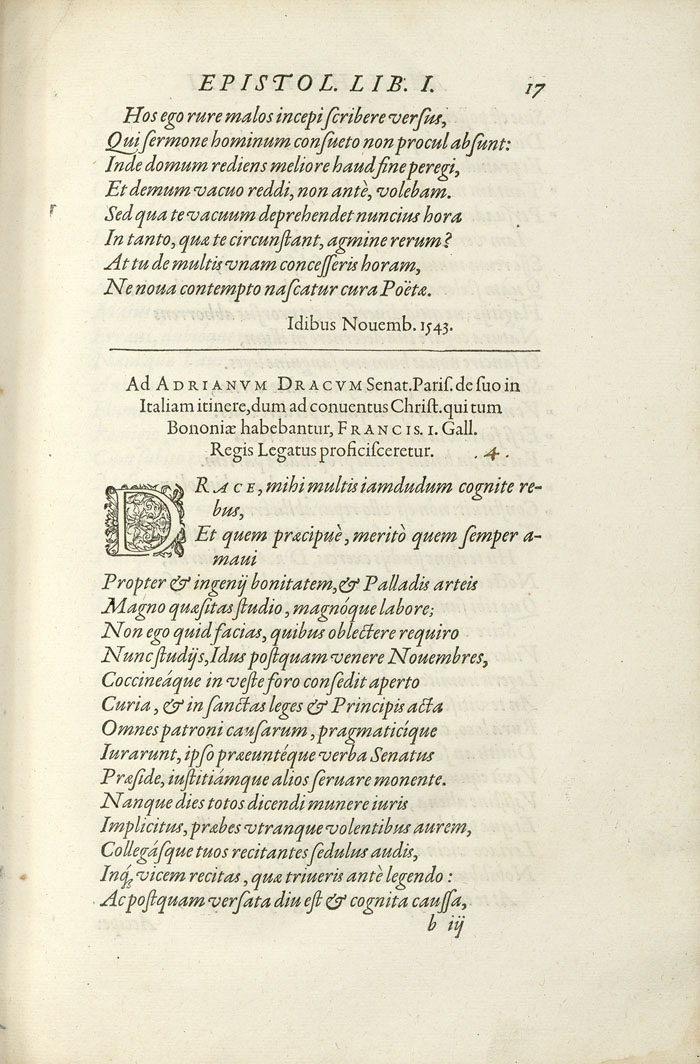 EPISTOL. LIB. I. 17
Hos ego rure malos incepi scribere versus,
Qui sermone hominum consueto non procul absunt:
Inde domum rediens meliore haud fine peregi,
Et demum vacuo reddi, non antè, volebam.
Sed qua te vacuum deprehendet nuncius hora
In tanto, quæ te circunstant, agmine rerum?
At tu de multis vnam concesseris horam,
Ne noua contempto nascatur cura Poëtæ.
Idibus Nouemb. 1543.
Ad ADRIANVM DRACVM Senat. Paris. de suo in
Italiam itinere, dum ad conuentus Christ. qui tum
Bononiæ habebantur, FRANCIS. I. Gall.
Regis Legatus proficisceretur. .4.
DRACE, mihi multis iamdudum cognite re-
bus,
Et quem præcipuè, meritò quem semper a-
maui
Propter & ingenij bonitatem, & Palladis arteis
Magno quæsitas studio, magnóque labore;
Non ego quid facias, quibus oblectere requiro
Nunc studijs, Idus postquam venere Nouembres,
Coccineáque in veste foro consedit aperto
Curia, & in sanctas leges & Principis acta
Omnes patroni causarum, pragmaticíque
Iurarunt, ipso præeuntéque verba Senatus
Præside, iustitiámque alios seruare monente.
Nanque dies totos dicendi munere iuris
Implicitus, præbes vtranque volentibus aurem,
Collegásque tuos recitantes sedulus audis,
Inq́; vicem recitas, quæ triueris antè legendo:
Ac postquam versata diu est & cognita caussa,
b iij